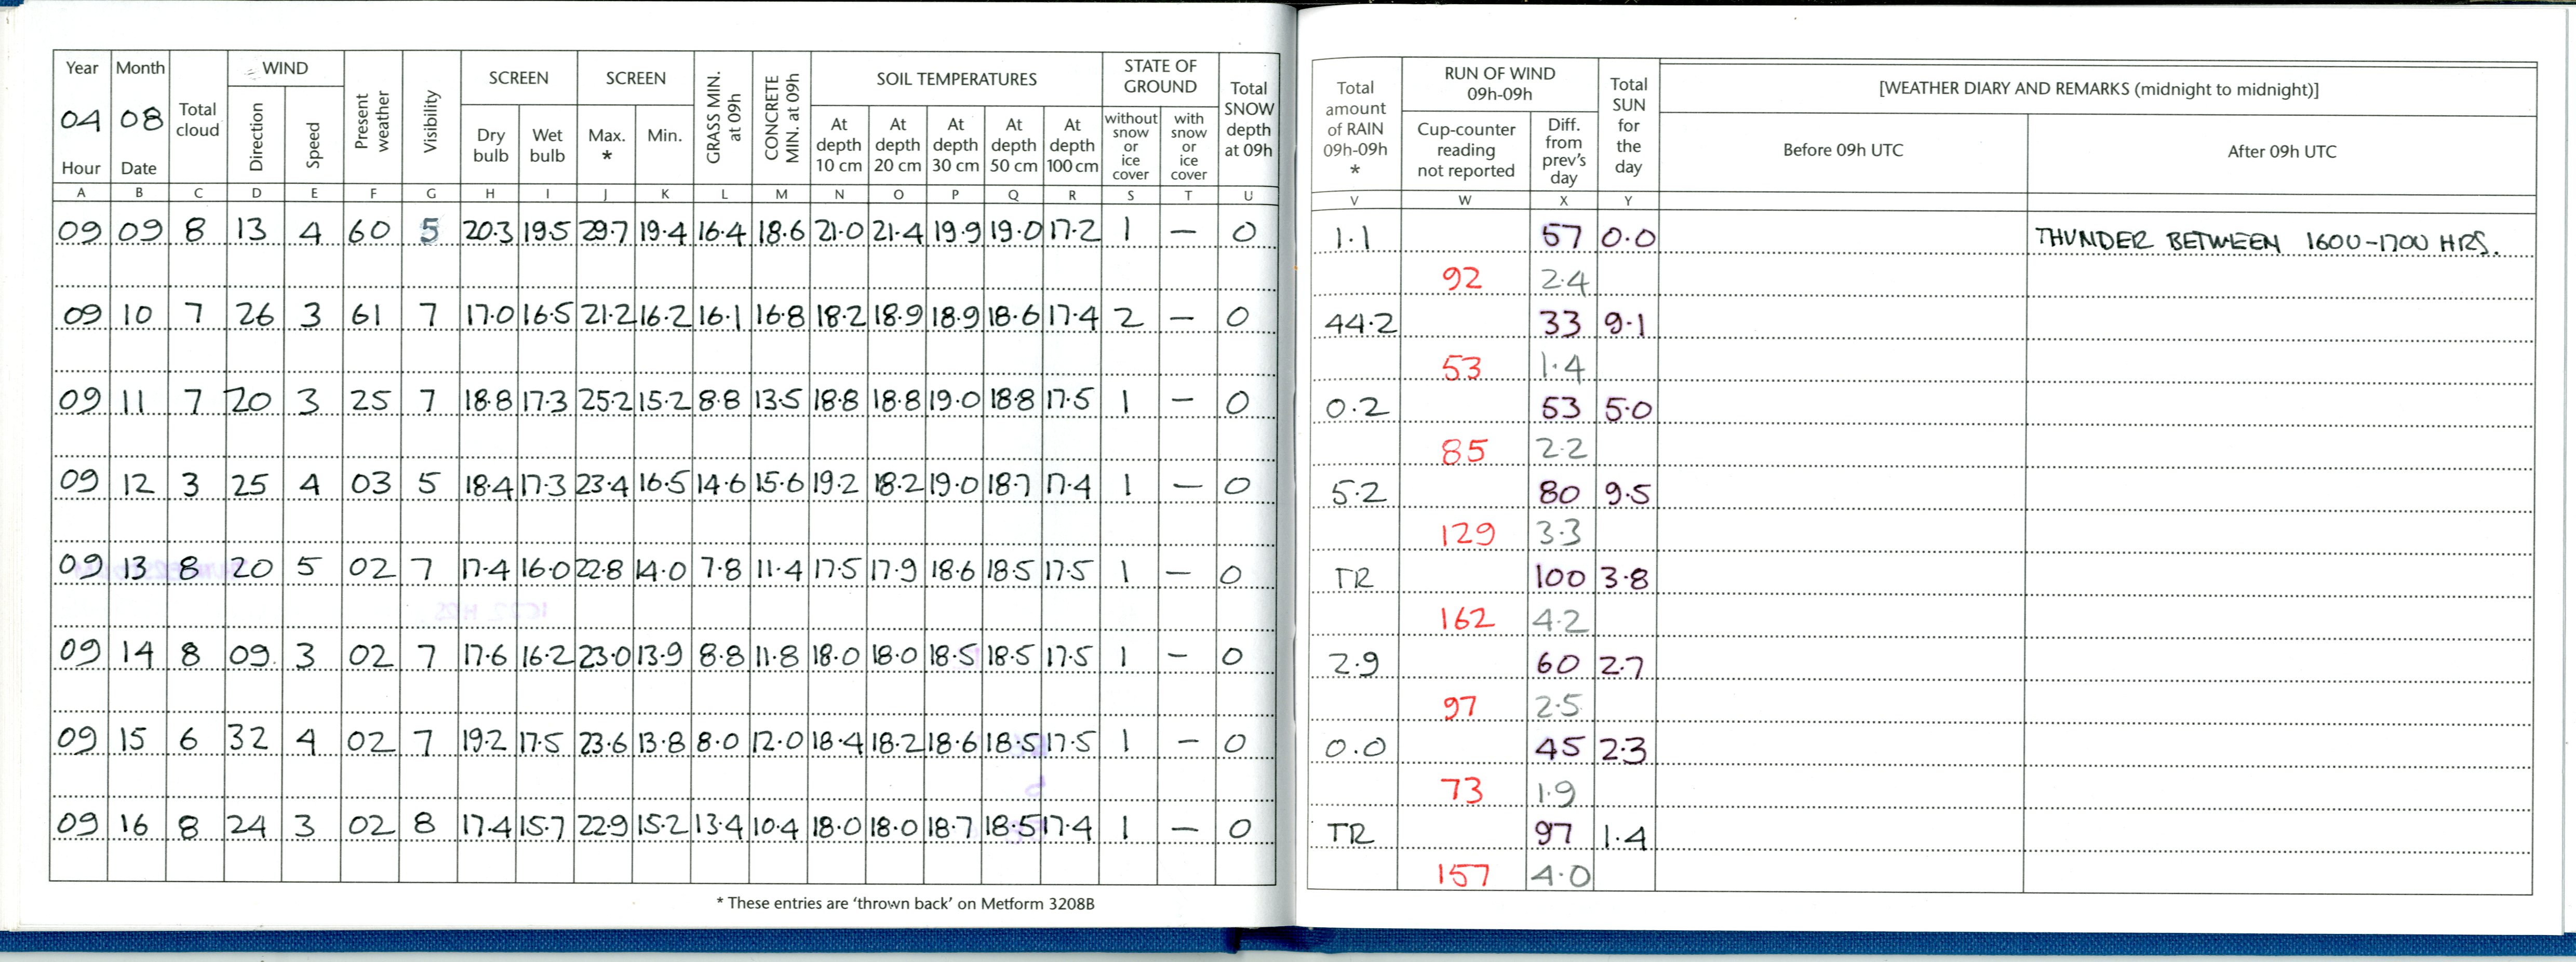 Year Month Total cloud WIND Present weather Visibility SCREEN SCREEN GRASS MIN. at 09h CONCRETE MIN. at 09h SOIL TEMPERATURES STATE OF GROUND Total SNOW depth at 09h
04 08 Direction Speed Dry bulb Wet bulb Max. * Min. At depth 10 cm At depth 20 cm At depth 30 cm At depth 50 cm At depth 100 cm without snow or ice cover with snow or ice cover
Hour Date
A B C D E F G H I J K L M N O P Q R S T U
09 09 8 13 4 60 5 20.3 19.5 29.7 19.4 16.4 18.6 21.0 21.4 19.9 19.0 17.2 1 — 0
09 10 7 26 3 61 7 17.0 16.5 21.2 16.2 16.1 16.8 18.2 18.9 18.9 18.6 17.4 2 — 0
09 11 7 20 3 25 7 18.8 17.3 25.2 15.2 8.8 13.5 18.8 18.8 19.0 18.8 17.5 1 — 0
09 12 3 25 4 03 5 18.4 17.3 23.4 16.5 14.6 15.6 19.2 18.2 19.0 18.7 17.4 1 — 0
09 13 8 20 5 02 7 17.4 16.0 22.8 14.0 7.8 11.4 17.5 17.9 18.6 18.5 17.5 1 — 0
09 14 8 09 3 02 7 17.6 16.2 23.0 13.9 8.8 11.8 18.0 18.0 18.5 18.5 17.5 1 — 0
09 15 6 32 4 02 7 19.2 17.5 23.6 13.8 8.0 12.0 18.4 18.2 18.6 18.5 17.5 1 — 0
09 16 8 24 3 02 8 17.4 15.7 22.9 15.2 13.4 10.4 18.0 18.0 18.7 18.5 17.4 1 — 0
* These entries are ‘thrown back’ on Metform 3208B
Total amount of RAIN 09h-09h * RUN OF WIND 09h-09h Total SUN for the day [WEATHER DIARY AND REMARKS (midnight to midnight)]
Cup-counter reading not reported Diff. from prev's day Before 09h UTC After 09h UTC
V W X Y
1.1 57 0.0 THUNDER BETWEEN 1600-1700 HRS.
92 2.4
44.2 33 9.1
53 1.4
0.2 53 5.0
85 2.2
5.2 80 9.5
129 3.3
TR 100 3.8
162 4.2
2.9 60 2.7
97 2.5
0.0 45 2.3
73 1.9
TR 97 1.4
157 4.0